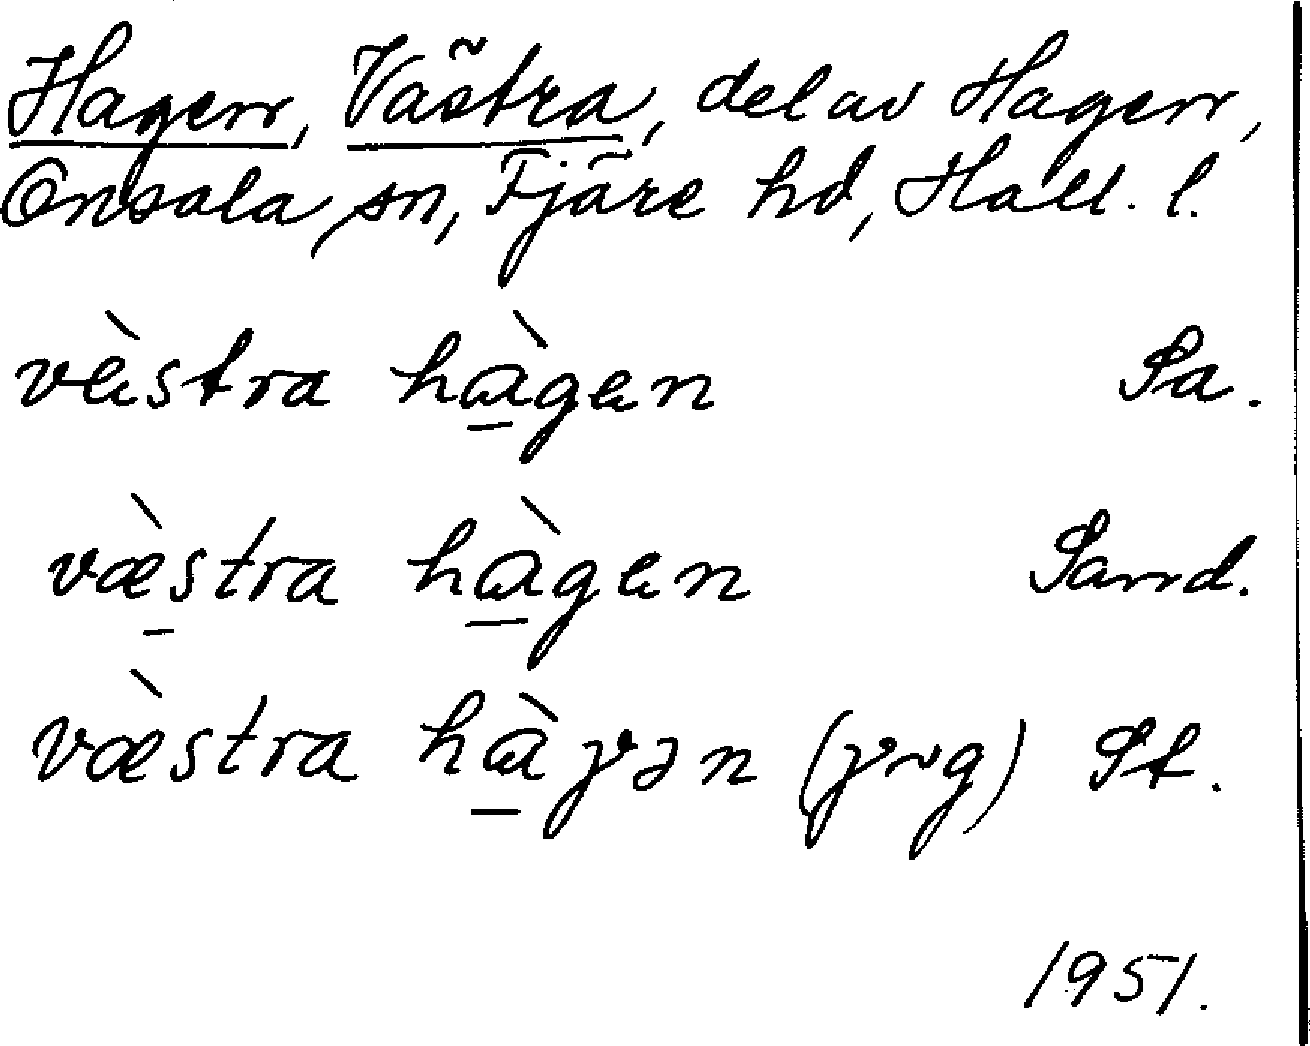 Hagen, Västra, del av Hagen,
Onsala sn, Fjäre hd, Hall. l.
vèstra hàgen Sa.
væ̀stra hàgen Sand.
væ̀stra hàɣən (ɣ~g) St.
1951.